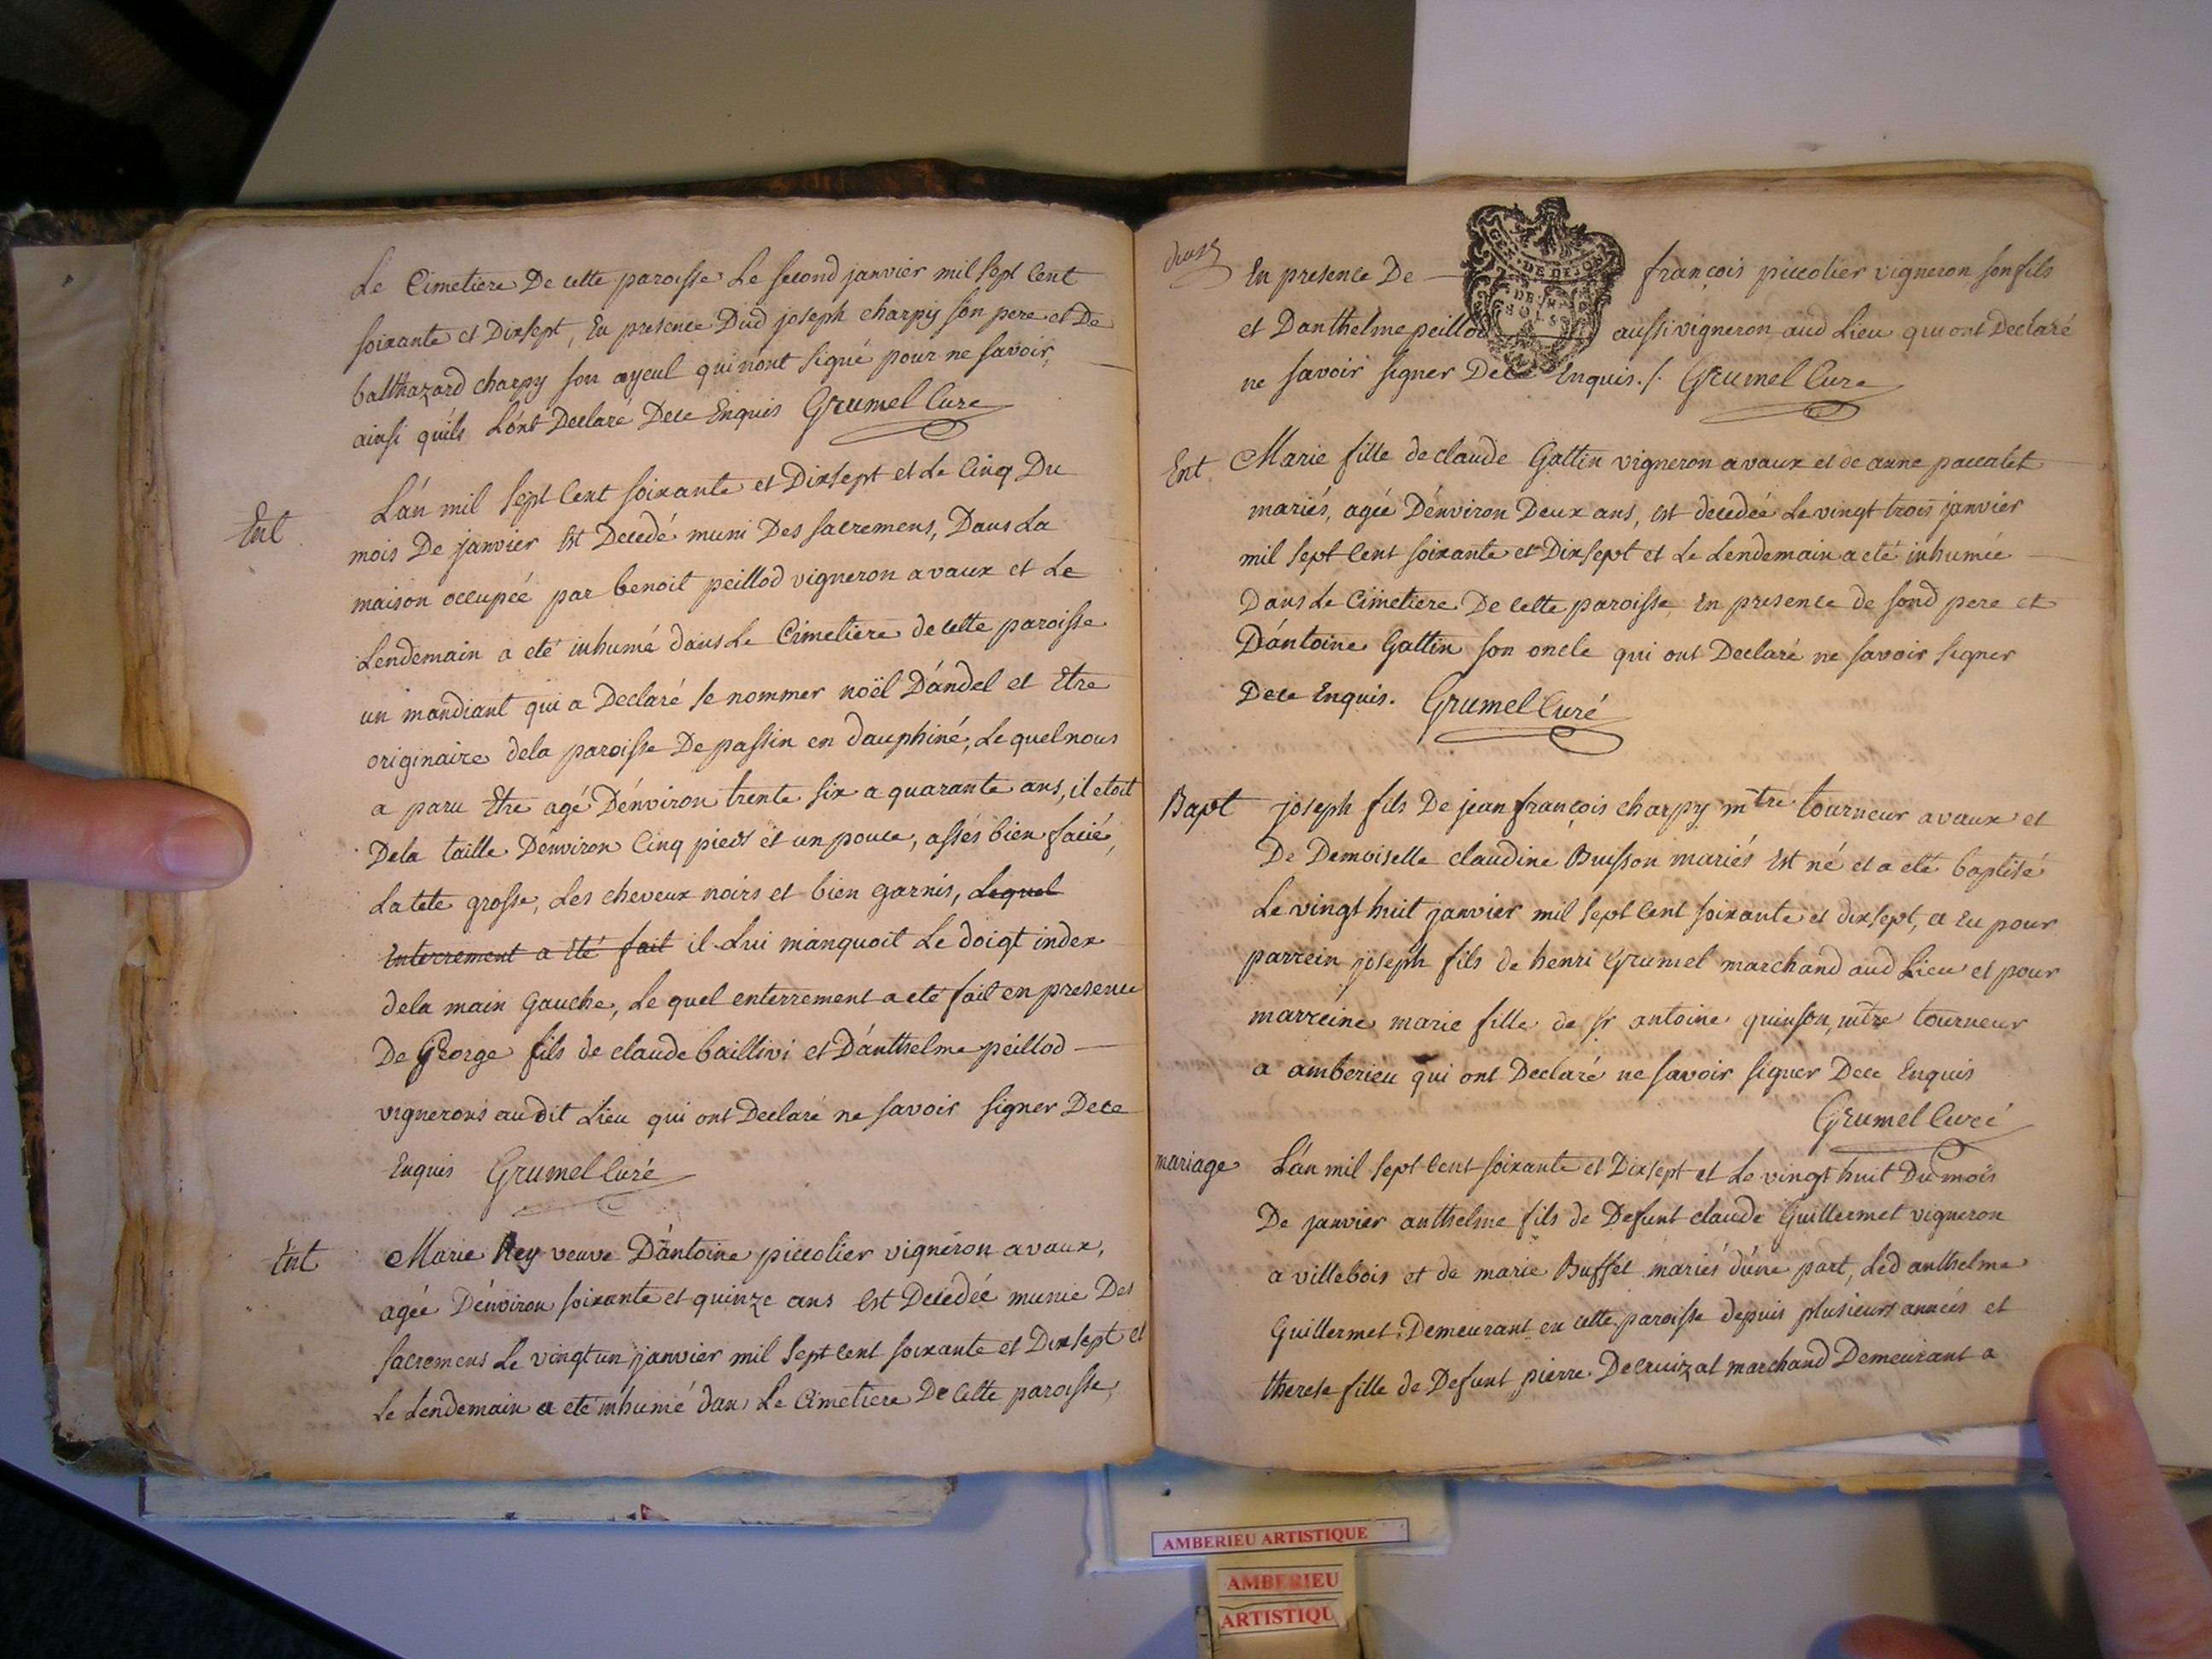 Le Cimetiere De cette paroisse Le second janvier mil sept Cent
soixante et Dixsept, En presence Dud joseph charpy son pere et De
balthazard charpy son ayeul qui n'ont signé pour ne savoir,
ainsi qu'ils L'ont Declaré Dece Enquis Grumel Curé
Ent
L'án mil sept Cent soixante et Dixsept et Le Cinq Du
mois De janvier Est Decedé muni Des sacremens, Dans La
maison occupée par benoit peillod vigneron a vaux et Le
Lendemain a eté inhumé dans Le Cimetiere de cette paroisse
un mandiant qui a Declaré se nommer noël D'andel et Etre
originaire dela paroisse De passin en dauphiné, Le quel nous
a paru Etre agé D'énviron trente six a quarante ans, il etoit
Dela taille D'environ Cinq pieds et un pouce, assés bien facié,
La tete grosse, Les cheveux noirs et bien garnis, Lequel
Enterrement a Eté fait il Lui manquoit Le doigt index
dela main Gauche, Le quel enterrement a eté fait en presence
De George fils de claude baillivi et D'ánthelme peillod
vignerons audit Lieu qui ont Declaré ne savoir signer Dece
Enquis Grumel Curé
Ent
Marie Rey veuve D'ántoine piccolier vigneron a vaux,
agée D'énviron soixante et quinze ans Est Decedée munie Des
sacremens Le vingt un janvier mil sept cent soixante et Dixsept et
Le Lendemain a eté inhumé dans Le Cimetiere De Cette paroisse,
En presence De françois piccolier vigneron son fils
et D'anthelme peillod aussi vigneron aud Lieu qui ont Declaré
ne savoir signer Dece Enquis./. Grumel Curé
GEN. DE DIJON
Ent
Marie fille de claude Gattin vigneron a vaux et de anne paccalet
mariés, agée D'énviron Deux ans, est decedée Le vingt trois janvier
mil sept Cent soixante et Dixsept et Le Lendemain a eté inhumée
Dans Le Cimetiere De Cette paroisse En presence de sond pere et
D'ántoine Gattin son oncle qui ont Declaré ne savoir signer
Dece Enquis. Grumel Curé
Bapt
joseph fils De jean françois charpy mtre tourneur a vaux et
De Demoiselle claudine Buisson mariés Est né et a eté baptisé
Le vingt huit janvier mil sept Cent soixante et dixsept, a Eu pour
parrein joseph fils de henri Grumel marchand aud Lieu et pour
marreine marie fille de sr antoine quinson, mtre tourneur
a amberieu qui ont Declaré ne savoir signer Dece Enquis
Grumel Curé
mariage
L'án mil sept Cent soixante et Dixsept et Le vingt huit Du mois
De janvier anthelme fils de Defunt claude Guillermet vigneron
a villebois et de marie Buffet mariés d'úne part, Led anthelme
Guillermet Demeurant en cette paroisse depuis plusieurs années et
therese fille de Defunt pierre Decruizat marchand Demeurant a
AMBERIEU ARTISTIQUE
AMBERIEU
ARTISTIQU